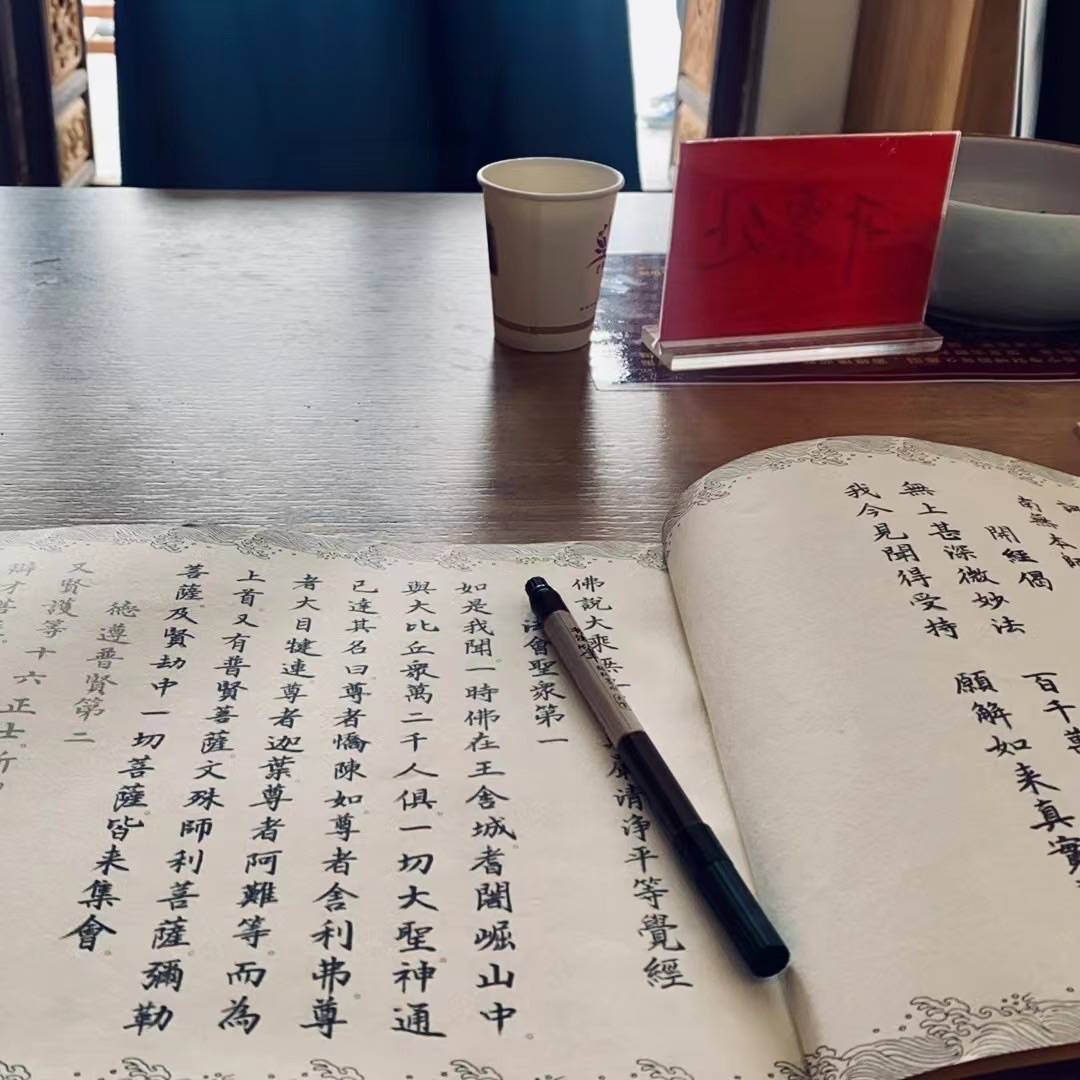 南無本師
開經偈
無上甚深微妙法 百千萬
我今見聞得受持 願解如来真實
佛說大乘無 嚴清浄平等覺經
法會聖衆第一
如是我聞一時佛在王舍城耆闍崛山中
與大比丘衆萬二千人俱一切大聖神通
已達其名曰尊者憍陳如尊者舍利弗尊
者大目犍連尊者迦葉尊者阿難等而為
上首又有普賢菩薩文殊師利菩薩彌勒
菩薩及賢劫中一切菩薩皆来集會
德遵普賢第二
又賢護等十六正士所
辯才菩